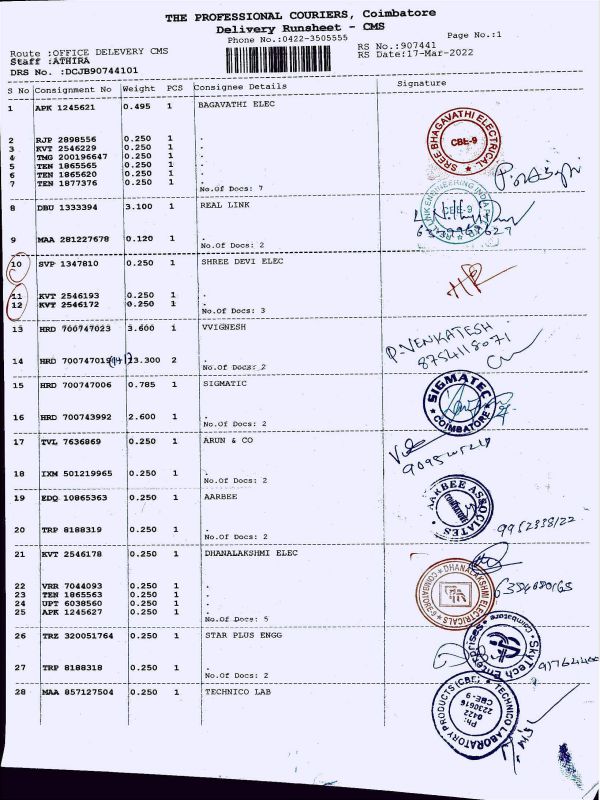 THE PROFESSIONAL COURIERS, Coimbatore
Delivery Runsheet - CMS
Phone No.:0422-3505555
Page No.:1
Route :OFFICE DELEVERY CMS
RS No.:907441
Staff :ATHIRA
RS Date:17-Mar-2022
DRS No. :DCJB90744101
S No Consignment No Weight PCS Consignee Details Signature
1 APK 1245621 0.495 1 BAGAVATHI ELEC
SREE BHAGAVATHI ELECTRICAL
CBE-9
2 RJP 2898556 0.250 1 .
3 KVT 2546229 0.250 1 .
4 TMG 200196647 0.250 1 .
5 TEN 1865565 0.250 1 .
6 TEN 1865620 0.250 1 .
7 TEN 1877376 0.250 1 .
No.Of Docs: 7
8 DBU 1333394 3.100 1 REAL LINK
CBE-9
9 MAA 281227678 0.120 1 .
No.Of Docs: 2
10 SVP 1347810 0.250 1 SHREE DEVI ELEC
11 KVT 2546193 0.250 1 .
12 KVT 2546172 0.250 1 .
No.Of Docs: 3
13 HRD 700747023 3.600 1 VVIGNESH
P. VENKATESH
8754118071
14 HRD 23.300 2 .
No.Of Docs: 2
15 HRD 700747006 0.785 1 SIGMATIC
SIGMATEC
COIMBATORE
16 HRD 700743992 2.600 1 .
No.Of Docs: 2
17 TVL 7636869 0.250 1 ARUN & CO
18 IXM 501219965 0.250 1 .
No.Of Docs: 2
19 EDQ 10865363 0.250 1 AARBEE
AARBEE ASSOCIATES
20 TRP 8188319 0.250 1 .
No.Of Docs: 2
21 KVT 2546178 0.250 1 DHANALAKSHMI ELEC
DHANALAKSHMI ELECTRICALS
22 VRR 7044093 0.250 1 .
23 TEN 1865563 0.250 1 .
24 UPT 6038560 0.250 1 .
25 APK 1245627 0.250 1 .
No.Of Docs: 5
26 TRZ 320051764 0.250 1 STAR PLUS ENGG
SkyTech Enterprises
Coimbatore
27 TRP 8188318 0.250 1 .
No.Of Docs: 2
28 MAA 857127504 0.250 1 TECHNICO LAB
TECHNICO LABORATORY PRODUCTS (CBE)
Ph:
0422
2230616
CBE-9